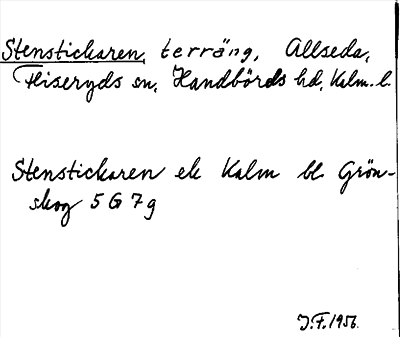 Stenstickaren, terräng, Allseda,
Fliseryds sn, Handbörds hd, Kalm. l.
Stenstickaren ek Kalm bl. Grön-
skog 5 G 7 g
J.F. 1956.